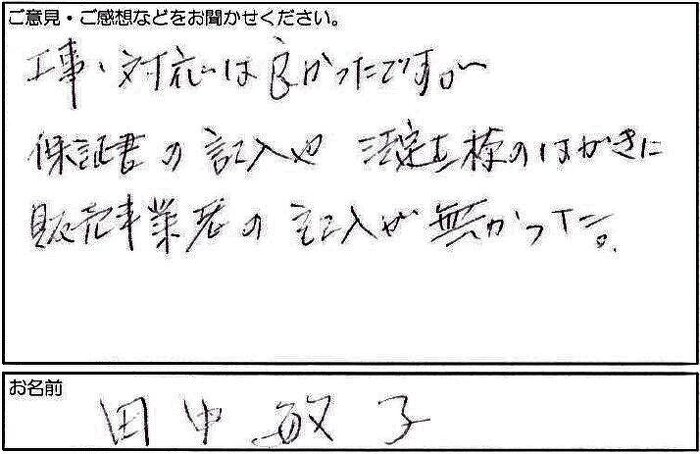 ご意見・ご感想などをお聞かせください。
工事・対応は良かったです。
保証書の記入や法定点検のはがきに
販売事業者の記入が無かった。
お名前
田中敏子